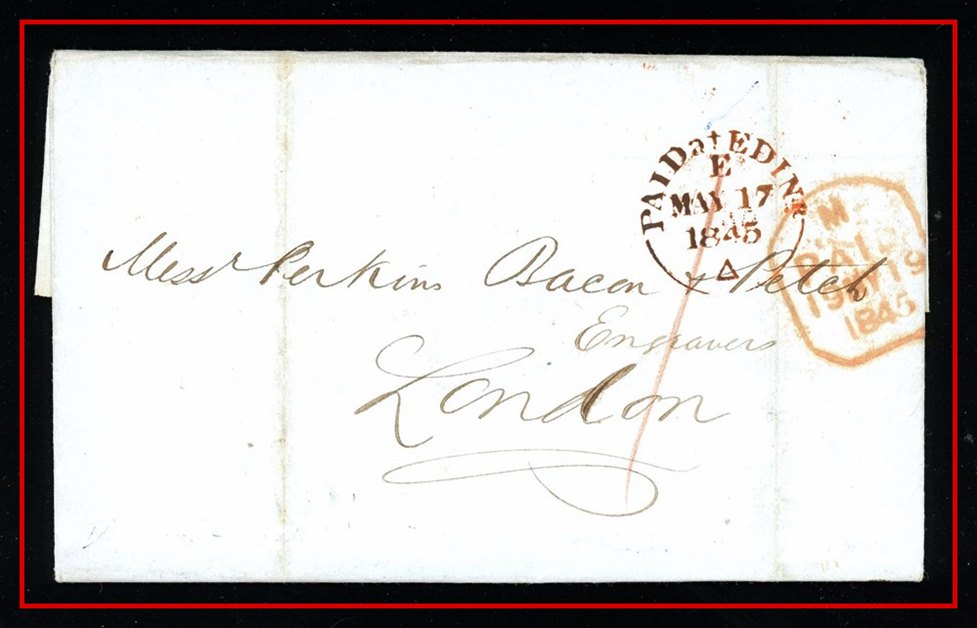 PAID at EDINR
E
MAY 17
1845
M
PAID
19 MY 19
1845
Messrs Perkins Bacon & Petch
Engravers
London